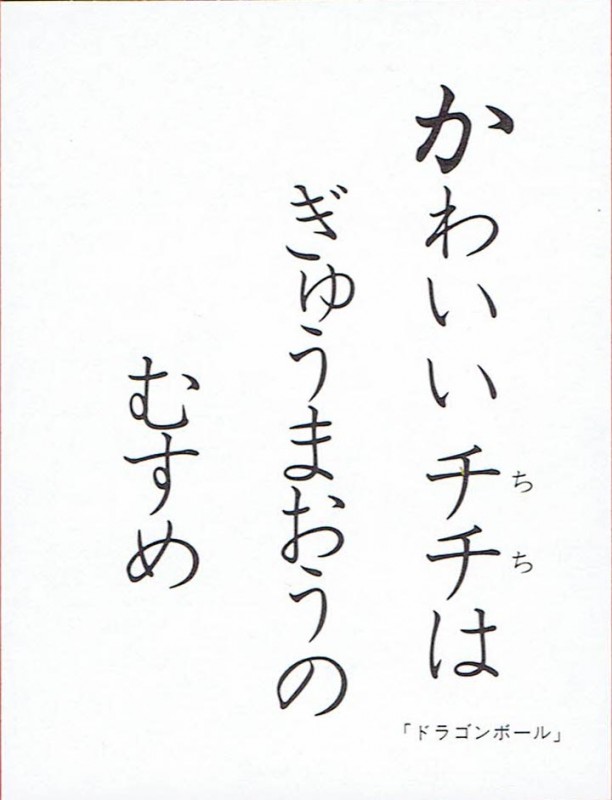 かわいいチチは
ちち
ぎゅうまおうの
むすめ
「ドラゴンボール」